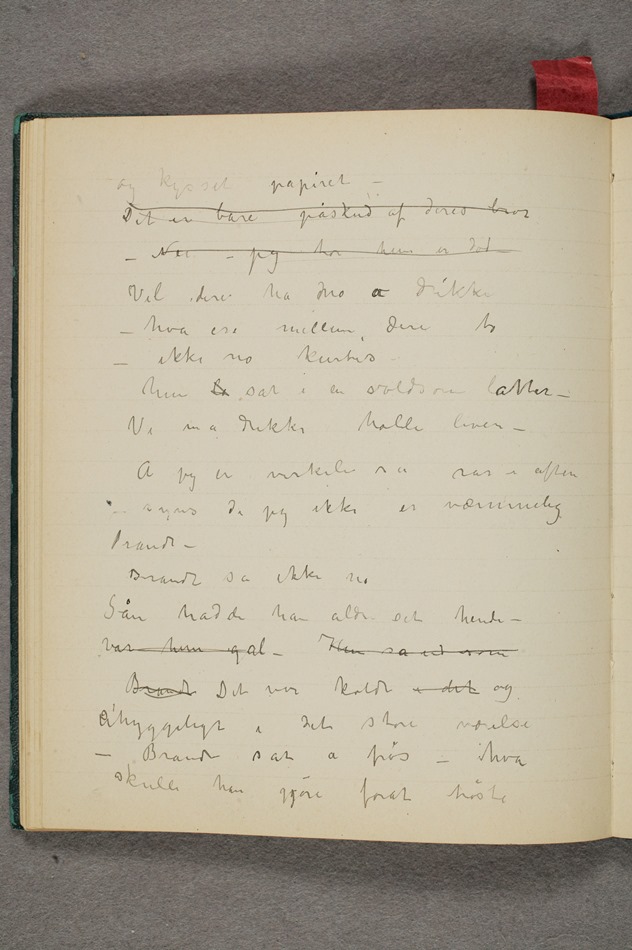 og kysset papiret –
Det er bare påskud af deres bror
– Nei – jeg tror hun er død
Vil dere ha dno a drikke
– hva ere mellem dere to
– ikke no kurtis –
hun sat i en voldsom latter –
Vi må drikke holde liven –
A jeg er virkelig så rar i aften
– syns da jeg ikke er væmmelig
Brandt –
Brandt sa ikke no
Sån hadde han aldr set hende –
var hun gal – Hun så ud som
Brandt Det var koldt i det og
uhyggeligt i det store værelse
– Brandt sat a frøs – hva
skulle han gjøre forat trøste